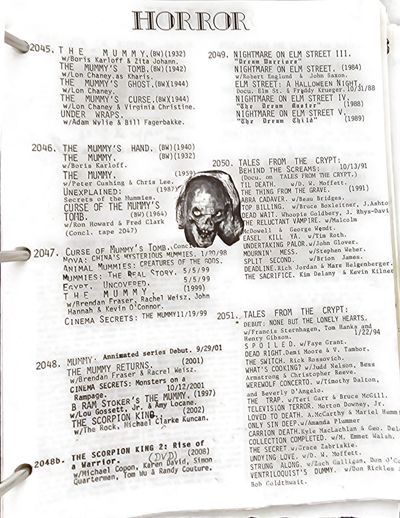 HORROR
2045. THE MUMMY.(BW)(1932)
w/Boris Karloff & Zita Johann.
THE MUMMY'S TOMB.(BW)(1942)
w/Lon Chaney.as Kharis.
THE MUMMY'S GHOST.(BW)(1944)
w/Lon Chaney.
THE MUMMY'S CURSE.(BW)(1944)
w/Lon Chaney & Virginia Christine.
UNDER WRAPS.
w/Adam Wylie & Bill Fagerbakke.
2046. THE MUMMY'S HAND.(BW)(1940)
THE MUMMY. (BW)(1932)
w/Boris Karloff.
THE MUMMY. (1959)
w/Peter Cushing & Chris Lee.
UNEXPLAINED: (1987)
Secrets of the Mummies.
CURSE OF THE MUMMY'S
TOMB. (BW)(1964)
w/Ron Howard & Fred Clark
(Concl. tape 2047)
2047. CURSE OF MUMMY'S TOMB.
NOVA: CHINA'S MYSTERIOUS MUMMIES. 1/20/98
ANIMAL MUMMIES: CREATURES OF THE GODS.
MUMMIES: THE REAL STORY. 5/5/99
EGYPT. UNCOVERED. 5/5/99
THE MUMMY. (1999)
w/Brendan Fraser, Rachel Weisz, John
Hannah & Kevin O'Connor.
CINEMA SECRETS: THE MUMMY11/19/99
2048. MUMMY: Annimated series Debut. 9/29/01
THE MUMMY RETURNS. (2001)
w/Brendan Fraser & Racrel Weisz.
CINEMA SECRETS: Monsters on a
Rampage. 10/12/2001
B RAM STOKER'S THE MUMMY. (1997)
w/Lou Gossett, Jr. & Amy Locane.
THE SCORPION KING. (2002)
w/The Rock, Michael Clarke Kuncan.
2048b. THE SCORPION KING 2: Rise of
a Warrior. (DVD) (2008)
w/Michael Copon, Karen David, Simon
Quarterman, Tom Wu & Randy Couture.
2049. NIGHTMARE ON ELM STREET III.
"Dream Warriors"
NIGHTMARE ON ELM STREET. (1984)
w/Robert Englund & John Saxon.
ELM STREET: A HALLOWEEN NIGHT.
Docu. Elm St. & Freddy Krueger.10/31/88
NIGHTMARE ON ELM STREET IV.
"The Dream Master" (1988)
NIGHTMARE ON ELM STREET V.
"The Dream Child" (1989)
2050. TALES FROM THE CRYPT:
BEHIND THE SCREAMS: 10/13/91
(Docu. on TALES FROM THE CRYPT.)
TIL DEATH. w/D. W. Moffett.
THE THING FROM THE GRAVE. (1991)
ABRA CADAVER. w/Beau Bridges.
TOP BILLING. w/ Bruce Boxleitner, J.Ashton
DEAD WAIT. Whoopie Goldberg, J. Rhys-Davi
THE RELUCTANT VAMPIRE. w/Malcolm
McDowell & George Wendt.
EASEL KILL YA. w/Tim Roth.
UNDERTAKING PALOR. w/John Glover.
MOURNIN' MESS. w/Stephen Weber.
SPLIT SECOND. w/Brion James.
DEADLINE.Rich Jordan & Marg Helgenberger.
THE SACRIFICE. Kim Delaney & Kevin Kilner
2051. TALES FROM THE CRYPT:
DEBUT: NONE BUT THE LONELY HEARTS.
w/Francis Sternhagen, Tom Hanks and
Henry Gibson. 1/22/94
SPOILED. w/Faye Grant.
DEAD RIGHT.Demi Moore & V. Tambor.
THE SWITCH. Rick Rossovich.
WHAT'S COOKING? w/Judd Nelson, Bess
Armstrong & Christopher Reeve.
WEREWOLF CONCERTO. w/Timothy Dalton,
and Beverly D'Angelo.
THE TRAP. w/Teri Garr & Bruce McGill.
TELEVISION TERROR. Morton Downey, Jr.
LOVED TO DEATH. A.McCarthy & Mariel Hemm
ONLY SIN DEEP.w/Amanda Plummer
CARRION DEATH.Kyle MacLachlan & Geo. Del
COLLECTION COMPLETED. w/M. Emmet Walsh,
THE SECRET. w/Grace Zabriskie.
UNDYING LOVE. w/D. W. Moffett.
STRUNG ALONG. w/Zach Galligan, Dam O'C
VENTRILOQUIST'S DUMMY. w/Don Rickles &
Bob Goldthwait.